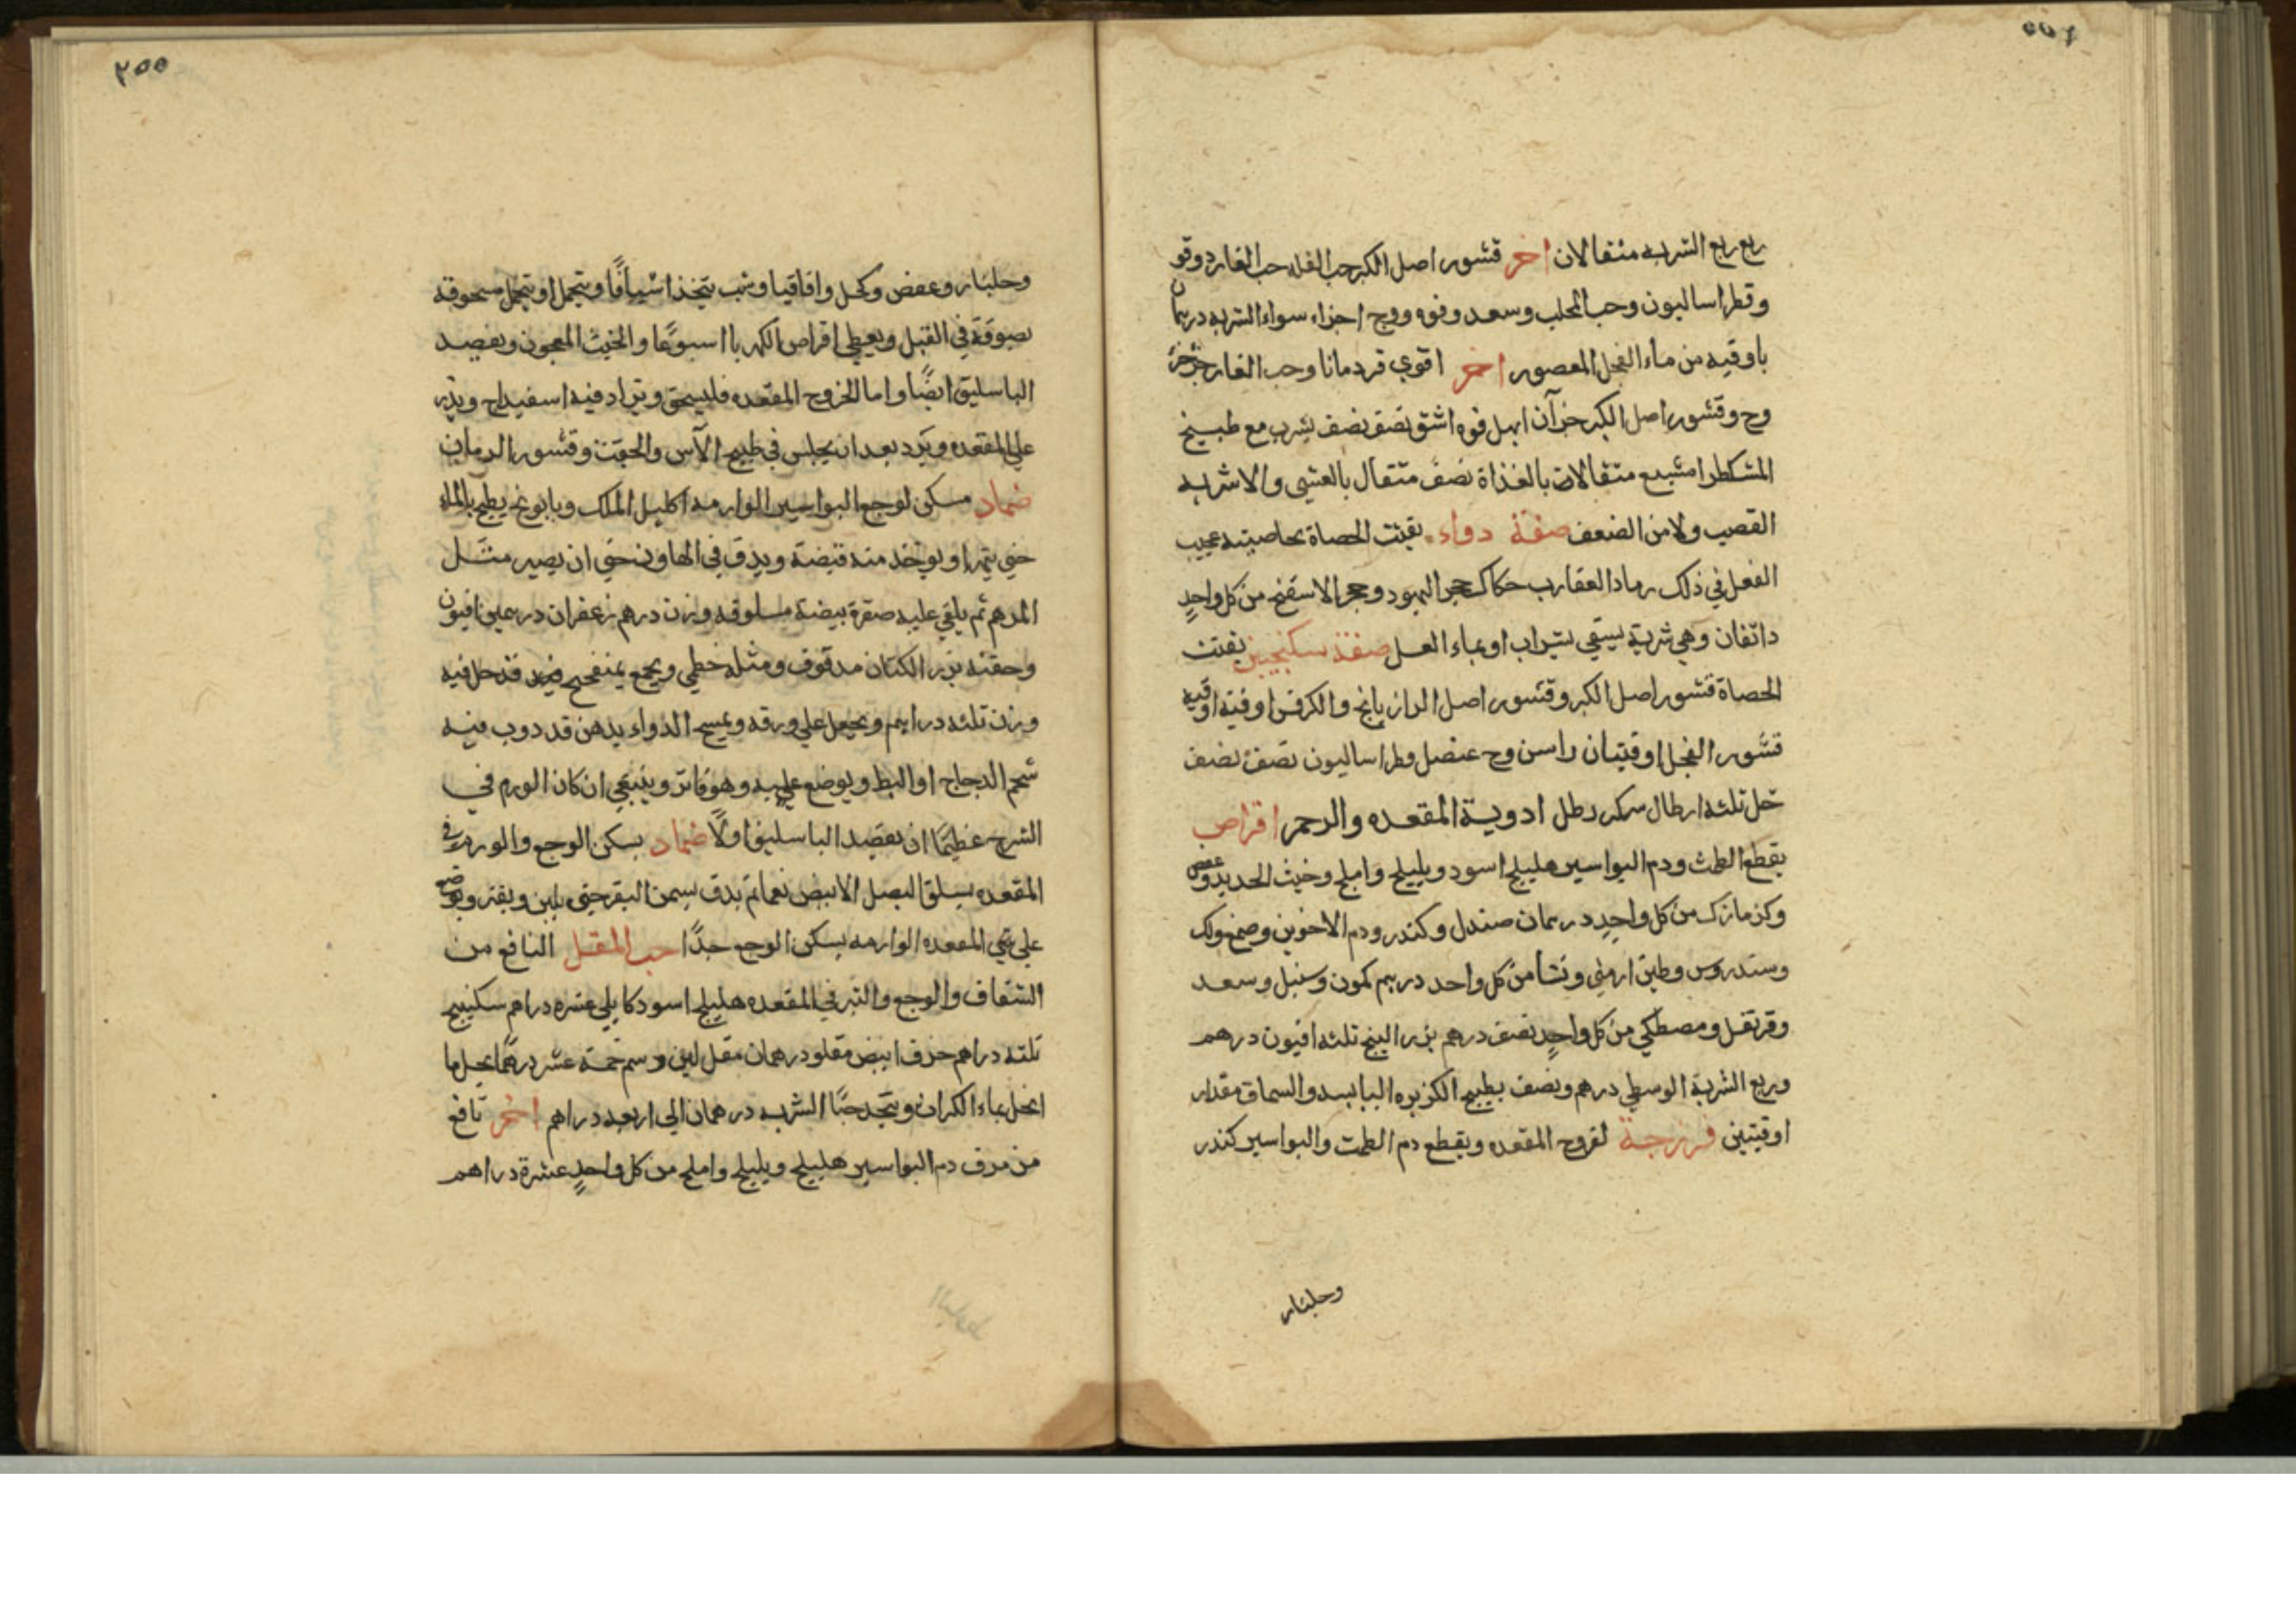 ربع ربع الشربه مثقالان اخر قشور اصل الكبر حب الفله حب الغار دوقو
وقطراساليون وحب المحلب وسعد وفوه ووج اجزاء سواء الشربه درهمان
باوقيه من ماء الفجل المعصور اخر اقوي قردمانا وحب الغار جزء جزء
وج وقشور اصل الكبر جزآن ابهل فوه اشق نصف نصف يشرب مع طبيخ
المشكطرامشيع مثقالان بالغذاة نصف مثقال بالعشي والاشربه
القصب ولامن الضعف صفة دواء يفتت الحصاة بخاصيته عجيب
الفعل في ذلك رماد العقارب حكاك حجر اليهود وحجر الاسفنج من كل واحدٍ
دانقان وهي شربة يسقي بشراب او بماء العسل صفة سكنجبين يفتت
الحصاة قشور اصل الكبر وقشور اصل الرازيانج والكرفس اوقيه اوقيه
قشور الفجل اوقيتان راسن وج عنصل وطراساليون نصف نصف
خل ثلثه ارطال سكر رطل ادوية المقعده والرحم اقراص
يقطع الطمث ودم البواسير هليلج اسود وبليلج واملج وخبث الحديد وعفص
وكزمازك من كل واحدٍ درهمان صندل وكندر ودم الاخوين وصمغ ولك
وسندروس وطين ارمني ونشا من كل واحد درهم كمون وسنبل وسعد
وقرنفل ومصطكي من كل واحدٍ نصف درهم بزر البنج ثلثه افيون درهم
وربع الشربة الوسطي درهم ونصف بطبيخ الكزبره اليابسه والسماق مقدار
اوقيتين فرزجة لقروح المقعده ويقطع دم الطمث والبواسير كندر
وجلنار
٣٥٥
وجلنار وعفص وكحل واقاقيا وشب يتخذ اشيافًا ويتحمل او يتحمل مسحوقه
بصوفة في القبل ويعطي اقراص الكهربا اسبوعًا والخبث المعجون ويفصد
الباسليق ايضًا واما لخروج المقعده فليسحق ويزاد فيه اسفيداج ويذر
علي المقعده ويرد بعد ان يجلس في طبيخ الآس والجفت وقشور الرمان
ضماد مسكن لوجع البواسير الوارمه اكليل الملك وبابونج يطبخ بالماء
حتي يتهرا ويوخذ منه قبضة ويدق في الهاون حتي ان يصير مثل
المرهم ثم يلقي عليه صفرة بيضة مسلوقه وزن درهم زعفران درهمين افيون
وحفنه بزر الكتان مدقوق ومثله خطمي ويجمع بمنفحج قد حل فيه
وزن ثلثه دراهم ويجعل علي ورقه ويمسح الدواء بدهن قد دوب فيه
شحم الدجاج او البط ويوضع عليه وهو فاتر وينبغي ان كان الورم في
الشرج عظيمًا ان يفصد الباسليق اولًا ضماد يسكن الوجع والورم في
المقعده يسلق البصل الابيض نعما ثم يدق بسمن البقر حتي يلين ويفتر ويوضع
علي المقعده الوارمه يسكن الوجع جدًا حب المقل النافع من
الشقاق والوجع والتبر في المقعده هليلج اسود كابلي عشره دراهم سكبينج
ثلثه دراهم حرف ابيض مقلو درهمان مقل لين وسم خمسة عشر درهمًا يحل ما
انحل بماء الكراث ويتخذ حبًا الشربه درهمان الي اربعه دراهم اخر نافع
من نزف دم البواسير هليلج وبليلج واملج من كل واحدٍ عشرة دراهم